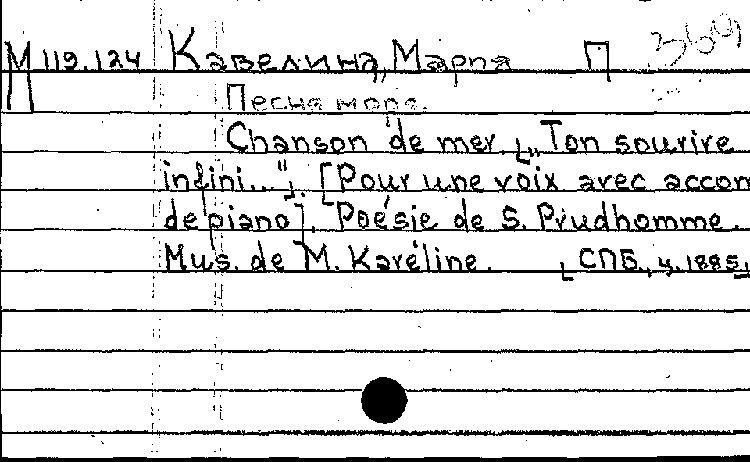 М 119.124 Кавелина, Мария П 369
Песня моря.
Chanson de mer. [„Ton sourire
infini..."]. [Pour une voix avec accom
de piano]. Poésie de S. Prudhomme.
Mus. de M. Kavéline. [СПБ., ц. 1885]